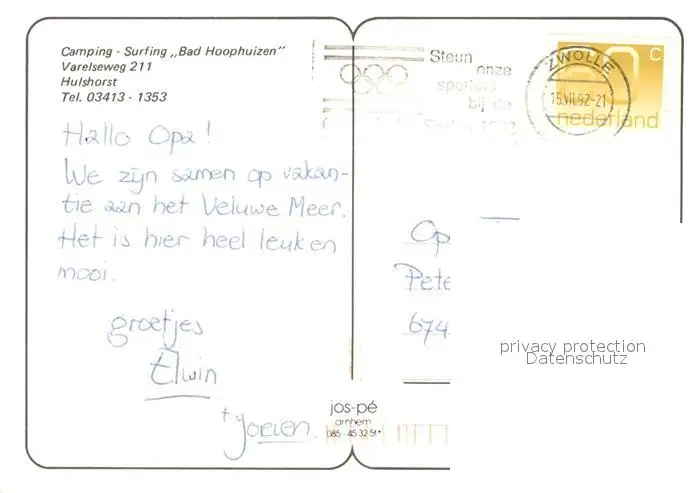 Camping - Surfing „Bad Hoophuizen"
Varelseweg 211
Hulshorst
Tel. 03413 - 1353
Hallo Opa!
We zijn samen op vakan-
tie aan het Veluwe Meer.
Het is hier heel leuk en
mooi.
groetjes
Elwin
+ Jorien
jos-pé
arnhem
085-45 32 51*
Steun
onze
sporters
bij de
Spelen 1992
ZWOLLE
15.VII.92-21
60 c
nederland
Op
Pete
674
privacy protection
Datenschutz